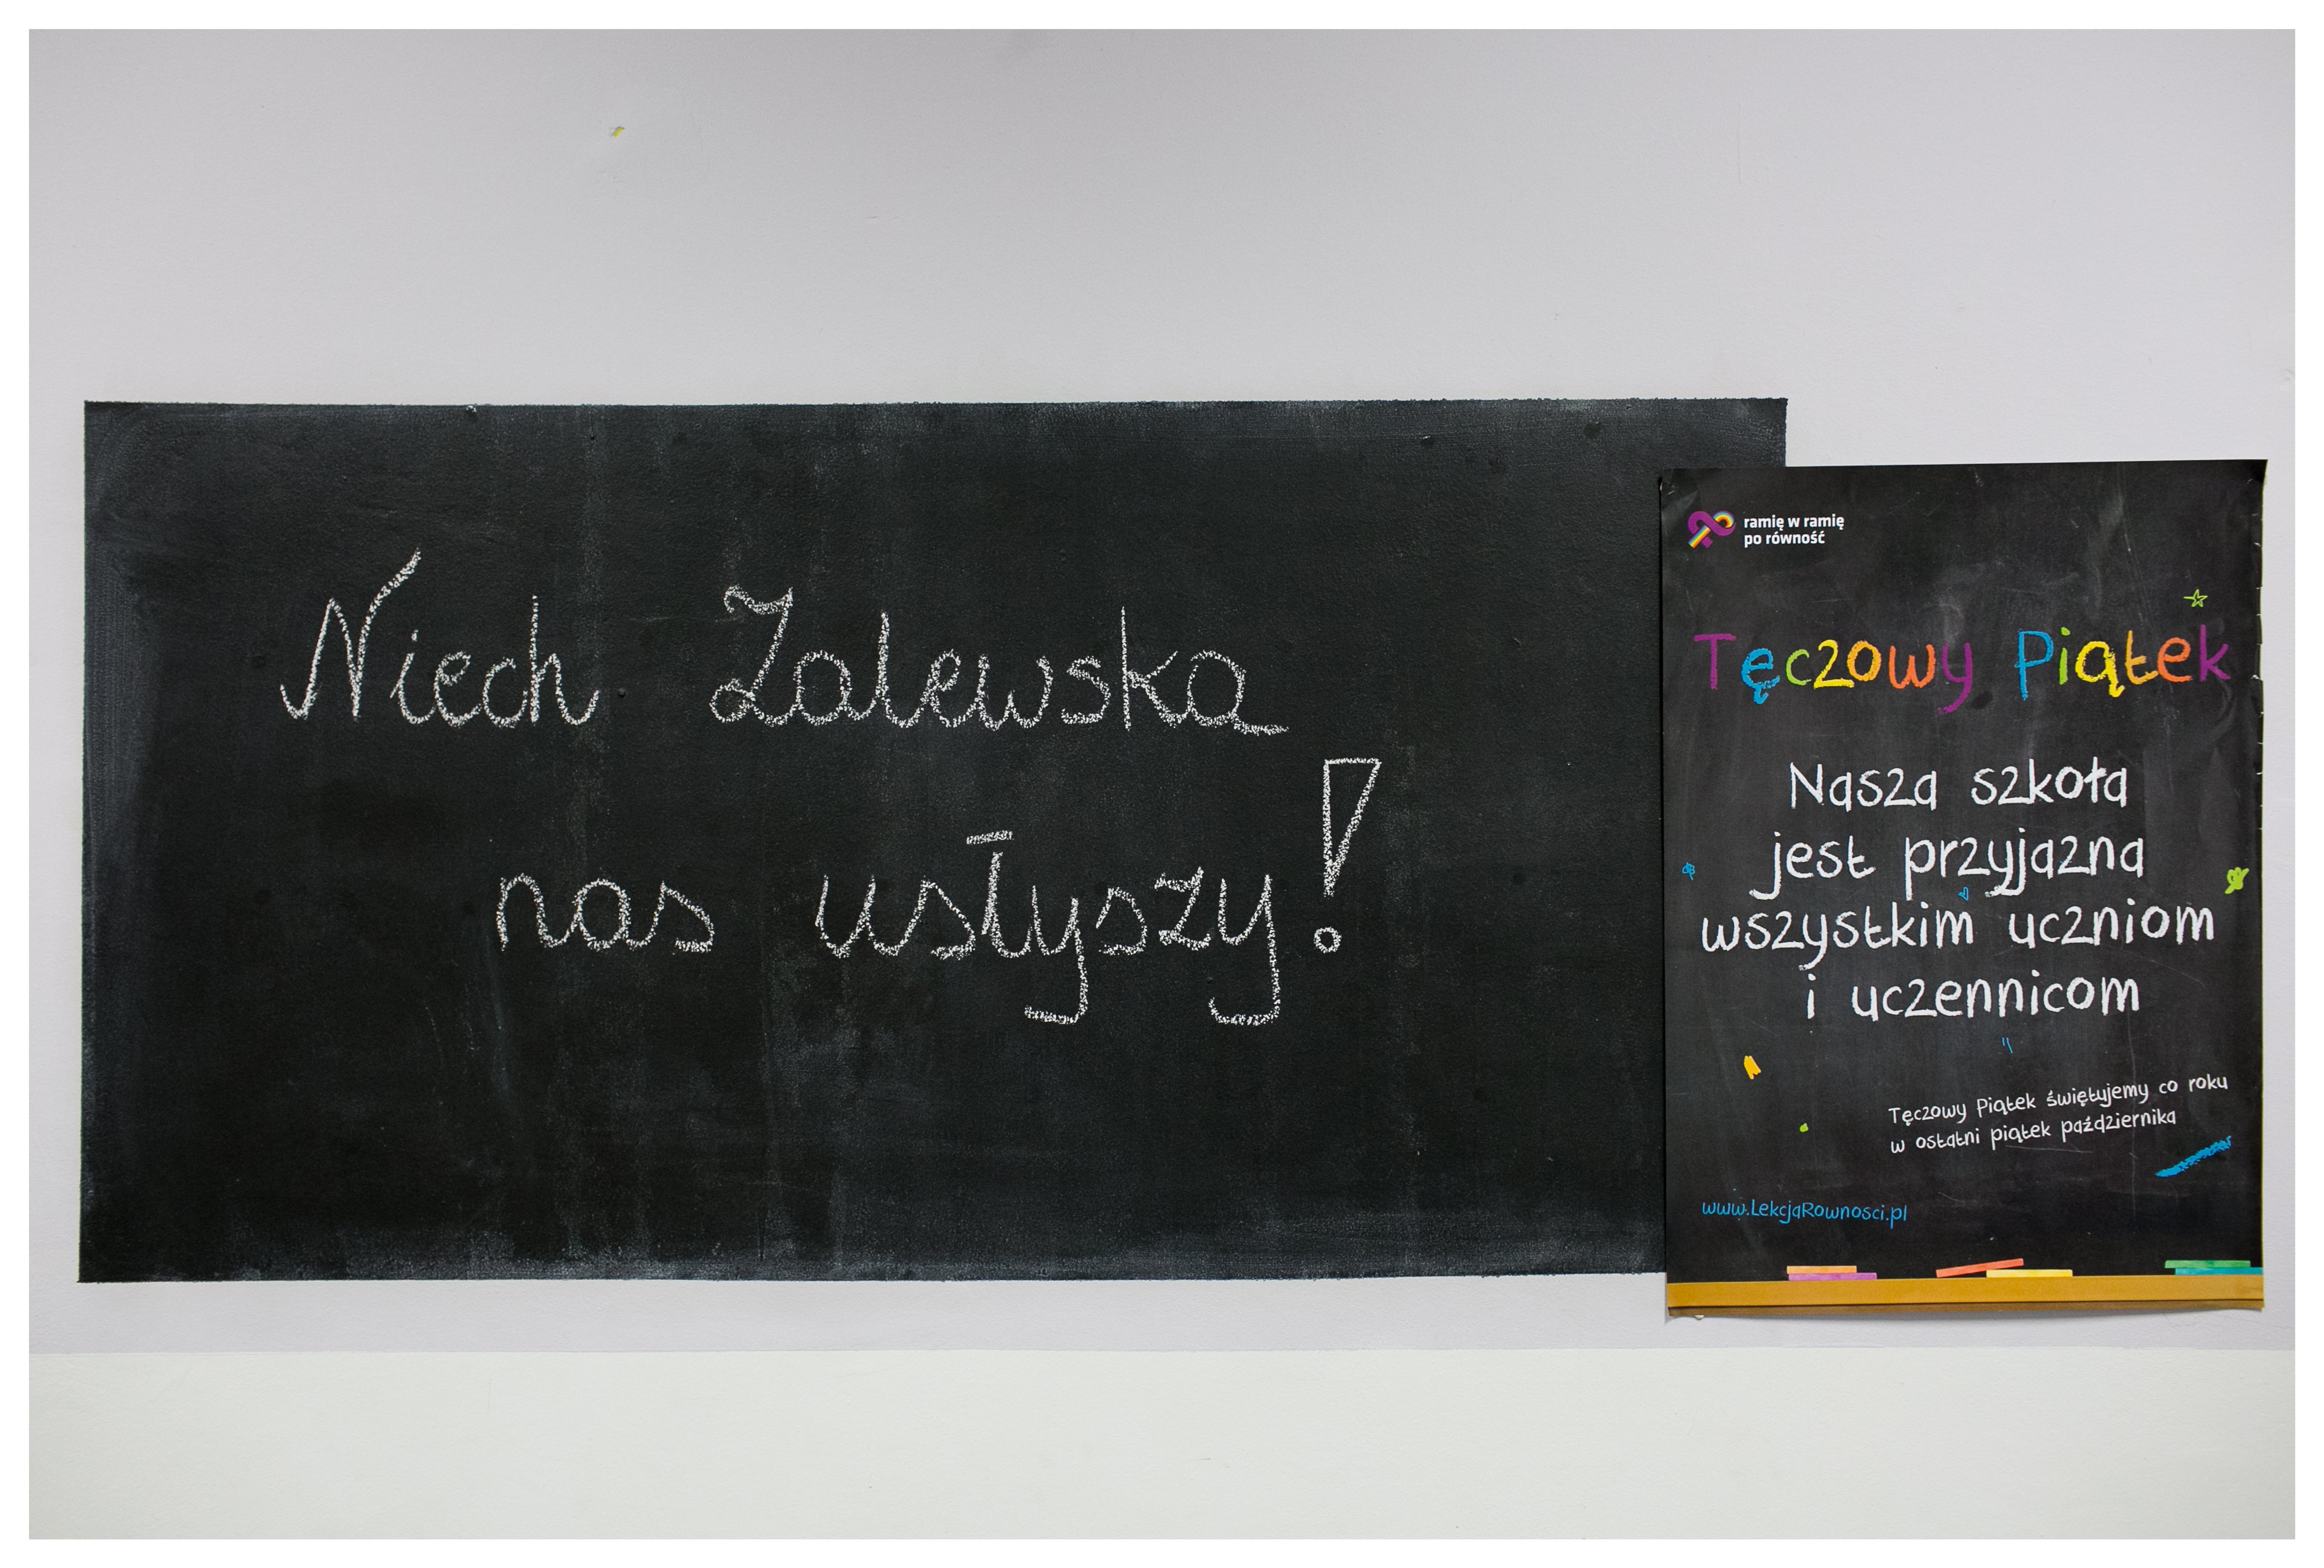 Niech Zalewska
nas usłyszy!
ramię w ramię
po równość
Tęczowy Piątek
Nasza szkoła
jest przyjazna
wszystkim uczniom
i uczennicom
Tęczowy Piątek świętujemy co roku
w ostatni piątek października
www.LekcjaRownosci.pl